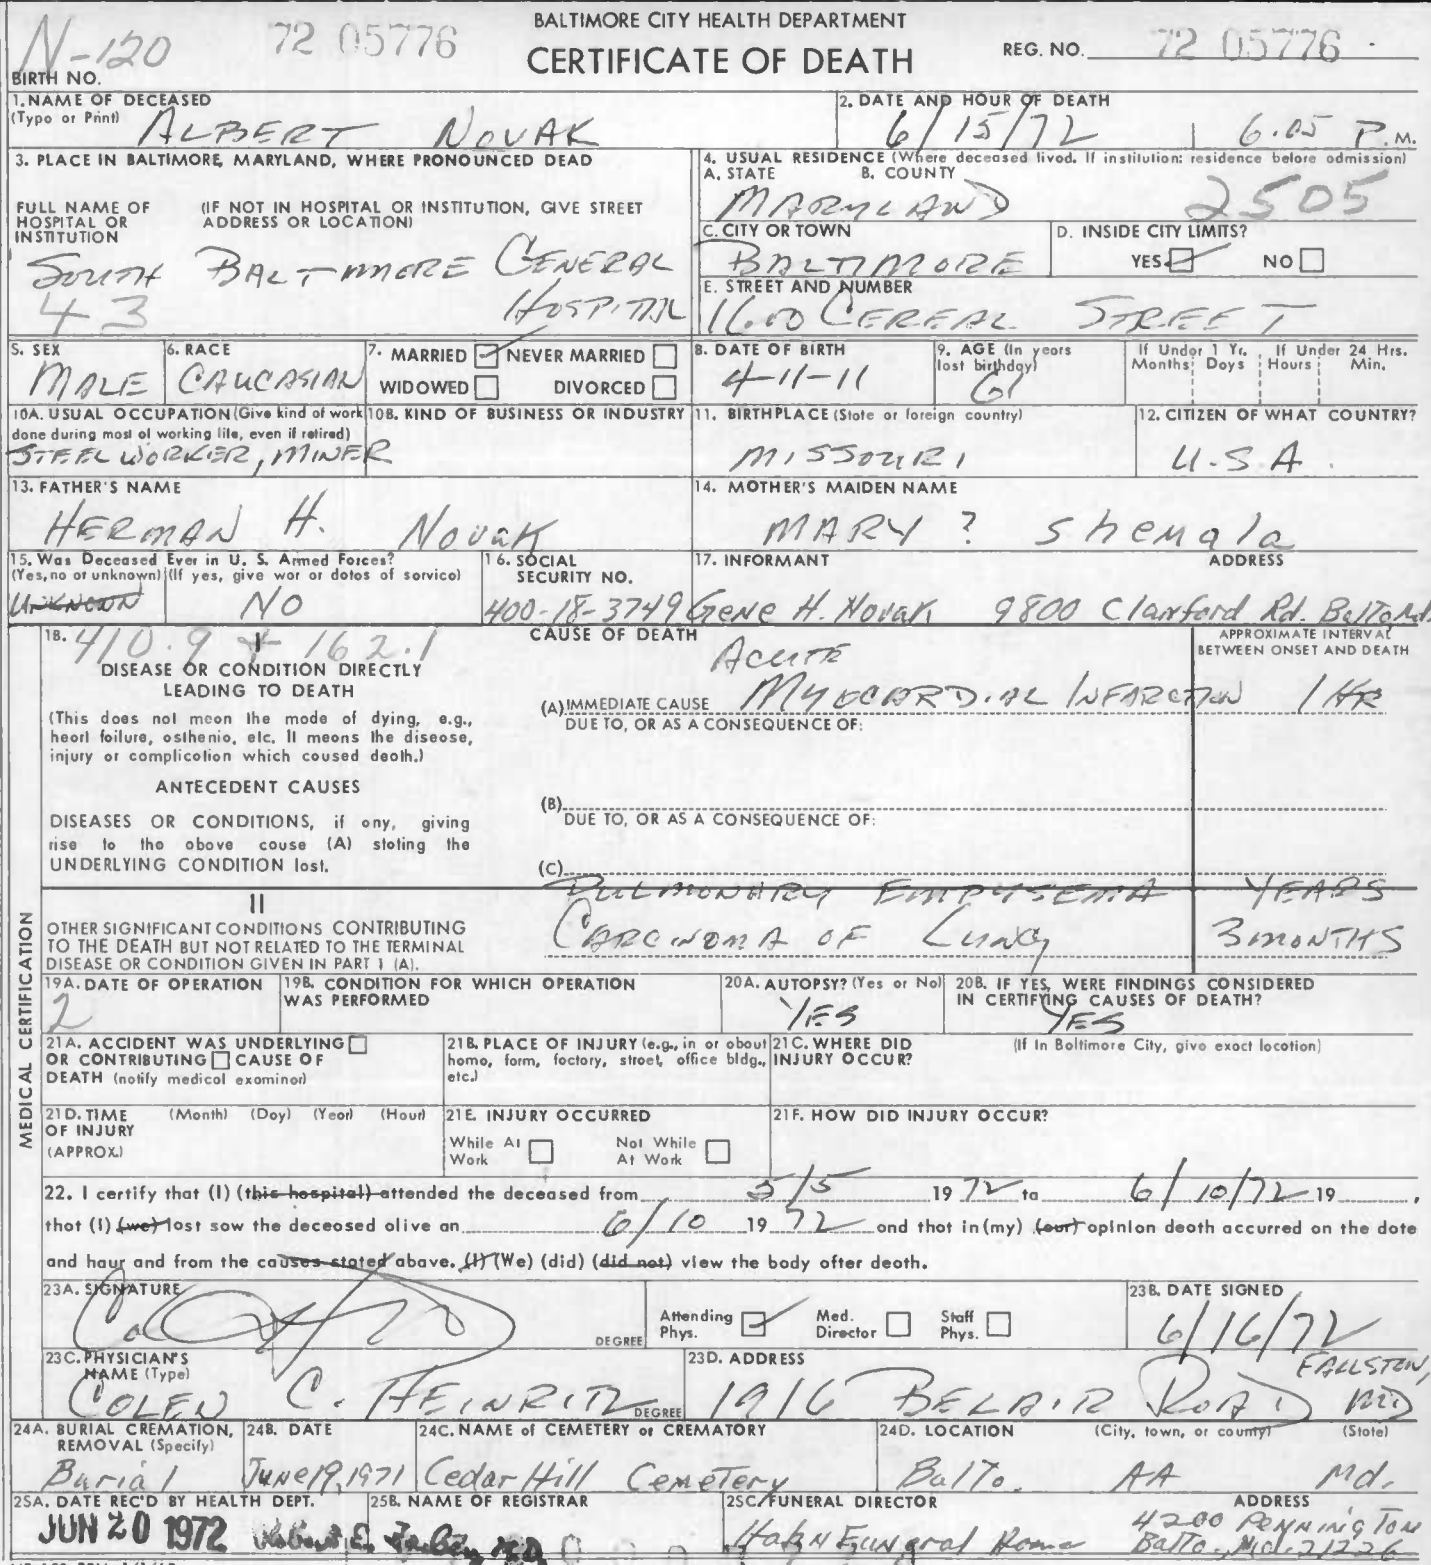 BALTIMORE CITY HEALTH DEPARTMENT
CERTIFICATE OF DEATH
N-120 72 05776 REG. NO. 72 05776
BIRTH NO.
1. NAME OF DECEASED (Type or Print) ALBERT NOVAK
2. DATE AND HOUR OF DEATH 6/15/72 6.05 P.M.
3. PLACE IN BALTIMORE, MARYLAND, WHERE PRONOUNCED DEAD
FULL NAME OF HOSPITAL OR INSTITUTION (IF NOT IN HOSPITAL OR INSTITUTION, GIVE STREET ADDRESS OR LOCATION)
SOUTH BALTIMORE GENERAL
43 HOSPITAL
4. USUAL RESIDENCE (Where deceased lived. If institution: residence before admission)
A. STATE B. COUNTY
MARYLAND 2505
C. CITY OR TOWN D. INSIDE CITY LIMITS?
BALTIMORE YES NO
E. STREET AND NUMBER
1600 CEREAL STREET
5. SEX MALE
6. RACE CAUCASIAN
7. MARRIED NEVER MARRIED
WIDOWED DIVORCED
8. DATE OF BIRTH 4-11-11
9. AGE (In years last birthday) 61
If Under 1 Yr. Months Days If Under 24 Hrs. Hours Min.
10A. USUAL OCCUPATION (Give kind of work done during most of working life, even if retired)
STEEL WORKER, MINER
10B. KIND OF BUSINESS OR INDUSTRY
11. BIRTHPLACE (State or foreign country) MISSOURI
12. CITIZEN OF WHAT COUNTRY? U.S.A.
13. FATHER'S NAME
HERMAN H. NOVAK
14. MOTHER'S MAIDEN NAME
MARY ? Shemala
15. Was Deceased Ever in U. S. Armed Forces?
(Yes, no or unknown) (If yes, give war or dates of service)
UNKNOWN NO
16. SOCIAL SECURITY NO.
400-18-3749
17. INFORMANT ADDRESS
Gene H. Novak 9800 Clanford Rd. Balto Md.
18. 410.9 + 162.1
I
DISEASE OR CONDITION DIRECTLY LEADING TO DEATH
(This does not mean the mode of dying, e.g., heart failure, asthenia, etc. It means the disease, injury or complication which caused death.)
ANTECEDENT CAUSES
DISEASES OR CONDITIONS, if any, giving rise to the above cause (A) stating the UNDERLYING CONDITION last.
CAUSE OF DEATH
APPROXIMATE INTERVAL BETWEEN ONSET AND DEATH
ACUTE
(A) IMMEDIATE CAUSE MYOCARDIAL INFARCTION 1 HR
DUE TO, OR AS A CONSEQUENCE OF:
(B)
DUE TO, OR AS A CONSEQUENCE OF:
(C)
II
OTHER SIGNIFICANT CONDITIONS CONTRIBUTING TO THE DEATH BUT NOT RELATED TO THE TERMINAL DISEASE OR CONDITION GIVEN IN PART I (A).
PULMONARY EMPYSEMA YEARS
CARCINOMA OF LUNG 3 MONTHS
MEDICAL CERTIFICATION
19A. DATE OF OPERATION 2
19B. CONDITION FOR WHICH OPERATION WAS PERFORMED
20A. AUTOPSY? (Yes or No) YES
20B. IF YES, WERE FINDINGS CONSIDERED IN CERTIFYING CAUSES OF DEATH? YES
21A. ACCIDENT WAS UNDERLYING OR CONTRIBUTING CAUSE OF DEATH (notify medical examiner)
21B. PLACE OF INJURY (e.g., in or about home, farm, factory, street, office bldg., etc.)
21C. WHERE DID INJURY OCCUR? (If In Baltimore City, give exact location)
21D. TIME OF INJURY (APPROX.) (Month) (Day) (Year) (Hour)
21E. INJURY OCCURRED
While At Work Not While At Work
21F. HOW DID INJURY OCCUR?
22. I certify that (I) (this hospital) attended the deceased from 5/5 1972 to 6/10/72 19 ,
that (I) (we) last saw the deceased alive on 6/10 1972 and that in (my) (our) opinion death accurred on the date
and hour and from the causes stated above. (I) (We) (did) (did not) view the body after death.
23A. SIGNATURE DEGREE
Attending Phys. Med. Director Staff Phys.
23B. DATE SIGNED
6/16/72
23C. PHYSICIAN'S NAME (Type)
COLEN C. HEINRITZ DEGREE
23D. ADDRESS
1916 BELAIR ROAD FALLSTON, MD
24A. BURIAL CREMATION, REMOVAL (Specify)
Burial
24B. DATE
June 19, 1971
24C. NAME of CEMETERY or CREMATORY
Cedar Hill Cemetery
24D. LOCATION (City, town, or county) (State)
Balto. AA Md.
25A. DATE REC'D BY HEALTH DEPT.
JUN 20 1972
25B. NAME OF REGISTRAR
Robert E. Farber, M.D.
25C. FUNERAL DIRECTOR ADDRESS
Hahn Funeral Home 4200 PENNINGTON
Balto., Md. 21226